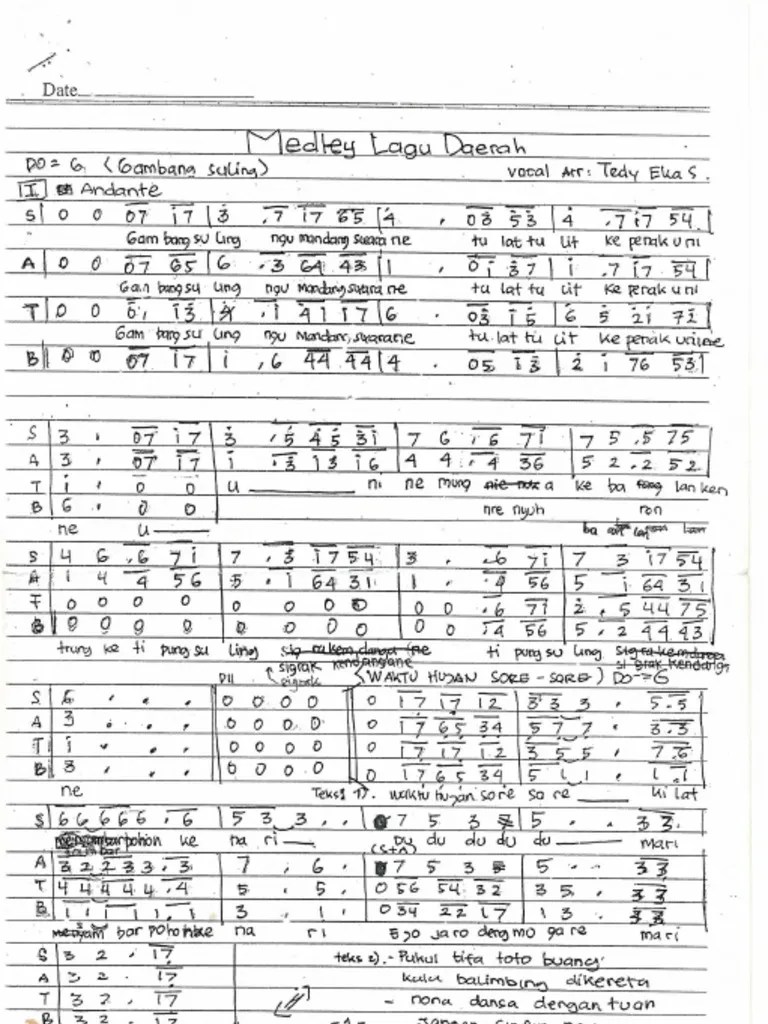 Date
Medley Lagu Daerah
DO = G (Gambang suling)
vocal Arr: Tedy Eka S.
I Andante
S 0 0 07 17 | 3 . 7 17 65 | 4 . 03 53 | 4 . 7 17 54
Gam bang su ling ngu mandang suara ne tu lat tu lit ke penak uni
A 0 0 07 65 | 6 . 3 64 43 | 1 . 01 37 | 1 . 7 17 54
Gam bang su ling ngu mandang suara ne tu lat tu lit ke penak uni
T 0 0 01 13 | . 1 41 17 | 6 . 03 15 | 6 5 21 72
Gam bang su ling ngu Mandang suarane tu lat tu lit ke penak unine
B 0 0 07 17 | 1 , 6 44 44 | 4 . 05 13 | 2 1 76 53
S 3 . 07 17 | 3 . 5 45 31 | 7 6 . 6 71 | 7 5 . 5 75
A 3 . 07 17 | 1 . 3 13 16 | 4 4 . 4 36 | 5 2 . 2 52
T 1 . 0 0 u ni ne mung a ke ba lan ken
B 6 . 0 0 nre nyuh ron
ne u
S 4 6 . 6 71 | 7 . 3 17 54 | 3 . . 6 71 | 7 3 17 54
A 1 4 4 56 | 5 . 1 64 31 | 1 . . 4 56 | 5 1 64 31
T 0 0 0 0 | 0 0 0 0 | 0 0 . 6 71 | 2 . 5 44 75
B 0 0 0 0 | 0 0 0 0 | 0 0 . 4 56 | 5 . 2 44 43
trung ke ti pung su ling ti pung su ling
sigrak kendangane
si grak kendangan
(WAKTU HUJAN SORE - SORE) DO = G
S 6 . . . | 0 0 0 0 | 0 17 17 12 | 3 3 3 . 5.5
A 3 . . . | 0 0 0 0 | 0 17 65 34 | 5 7 7 . 3.3
T 1 . . . | 0 0 0 0 | 0 17 17 12 | 3 5 5 . 7.6
B 3 . . . | 0 0 0 0 | 0 17 65 34 | 5 1 1 . 1.1
ne Teks 1). waktu hujan sore so re ki lat
S 66 66 66 . 6 | 5 3 3 . | 7 5 3 | 5 . . 33
bar pohon ke na ri du du du du du mari
(S+A)
A 3 2 2 3 3 . 3 | 7 . 6 . | 7 5 3 | 5 . . 33
T 4 4 4 4 4 . 4 | 5 . 5 . | 0 56 54 32 | 35 . . 33
B 1 1 1 1 1 . 1 | 3 . 1 . | 0 34 22 17 | 13 . 33
bar pohon ke na ri E jo jaro deng mo ga re mari
S 3 2 . 17
teks 2). - Pukul tifa toto buang
A 3 2 . 17
kulu balimbing dikereta
T 3 2 . 17
- nona dansa dengan tuan
B 3 2 . 17